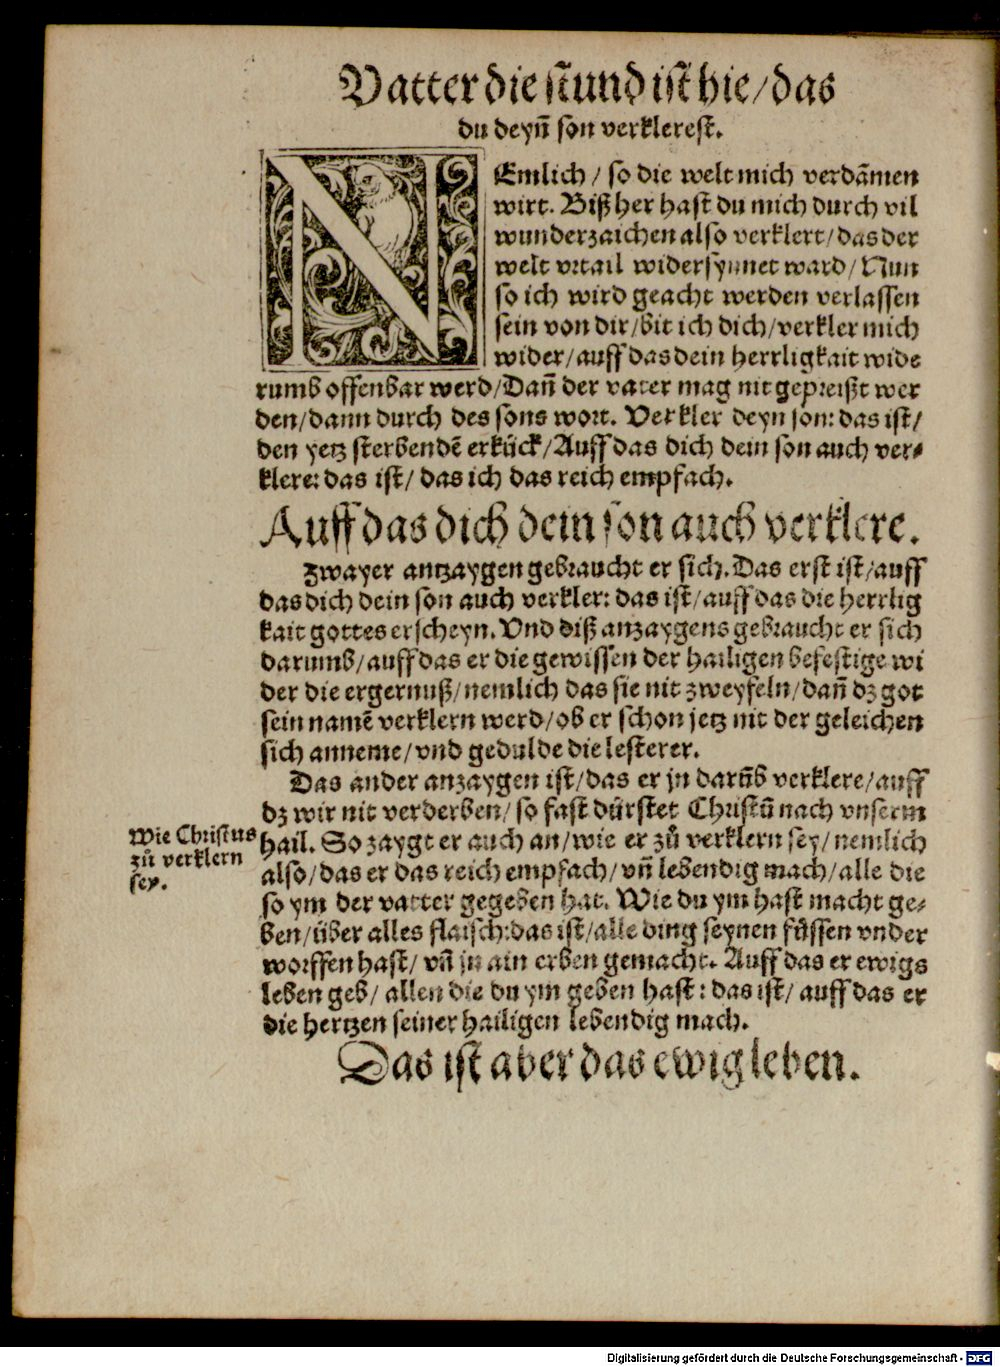 Vatter die stund ist hie/das
du deyñ son verklerest.
NEmlich / so die welt mich verdãmen
wirt. Biß her hast du mich durch vil
wunderzaichen also verklert/das der
welt vrtail widersynnet ward/Nun
so ich wird geacht werden verlassen
sein von dir/bit ich dich/verkler mich
wider/auff das dein herrligkait wide
rumb offenbar werd/Dañ der vater mag nit gepreißt wer
den/dann durch des sons wort. Verkler deyn son: das ist/
den yetz sterbendẽ erkück/Auff das dich dein son auch ver⸗
klere: das ist/ das ich das reich empfach.
Auff das dich dein son auch verklere.
Zwayer antzaygen gebraucht er sich. Das erst ist/auff
das dich dein son auch verkler: das ist/auff das die herrlig
kait gottes erscheyn. Vnd diß anzaygens gebraucht er sich
darumb/auff das er die gewissen der hailigen befestige wi
der die ergernuß/nemlich das sie nit zweyfeln/dañ dz got
sein namẽ verklern werd/ob er schon jetz nit der geleichen
sich anneme/vnd gedulde die lesterer.
Das ander anzaygen ist/das er jn darũb verklere/auff
dz wir nit verderben/so fast dürstet Christũ nach vnserm
Wie Christus
zů verklern
sey.
hail. So zaygt er auch an/wie er zů verklern sey/nemlich
also/das er das reich empfach/vñ lebendig mach/alle die
so ym der vatter gegeben hat. Wie du ym hast macht ge⸗
ben/über alles flaisch: das ist/alle ding seynen füssen vnder
worffen hast/ vñ jn ain erben gemacht. Auff das er ewigs
leben geb/ allen die du ym geben hast: das ist/ auff das er
die hertzen seiner hailigen lebendig mach.
Das ist aber das ewig leben.
Digitalisierung gefördert durch die Deutsche Forschungsgemeinschaft - DFG